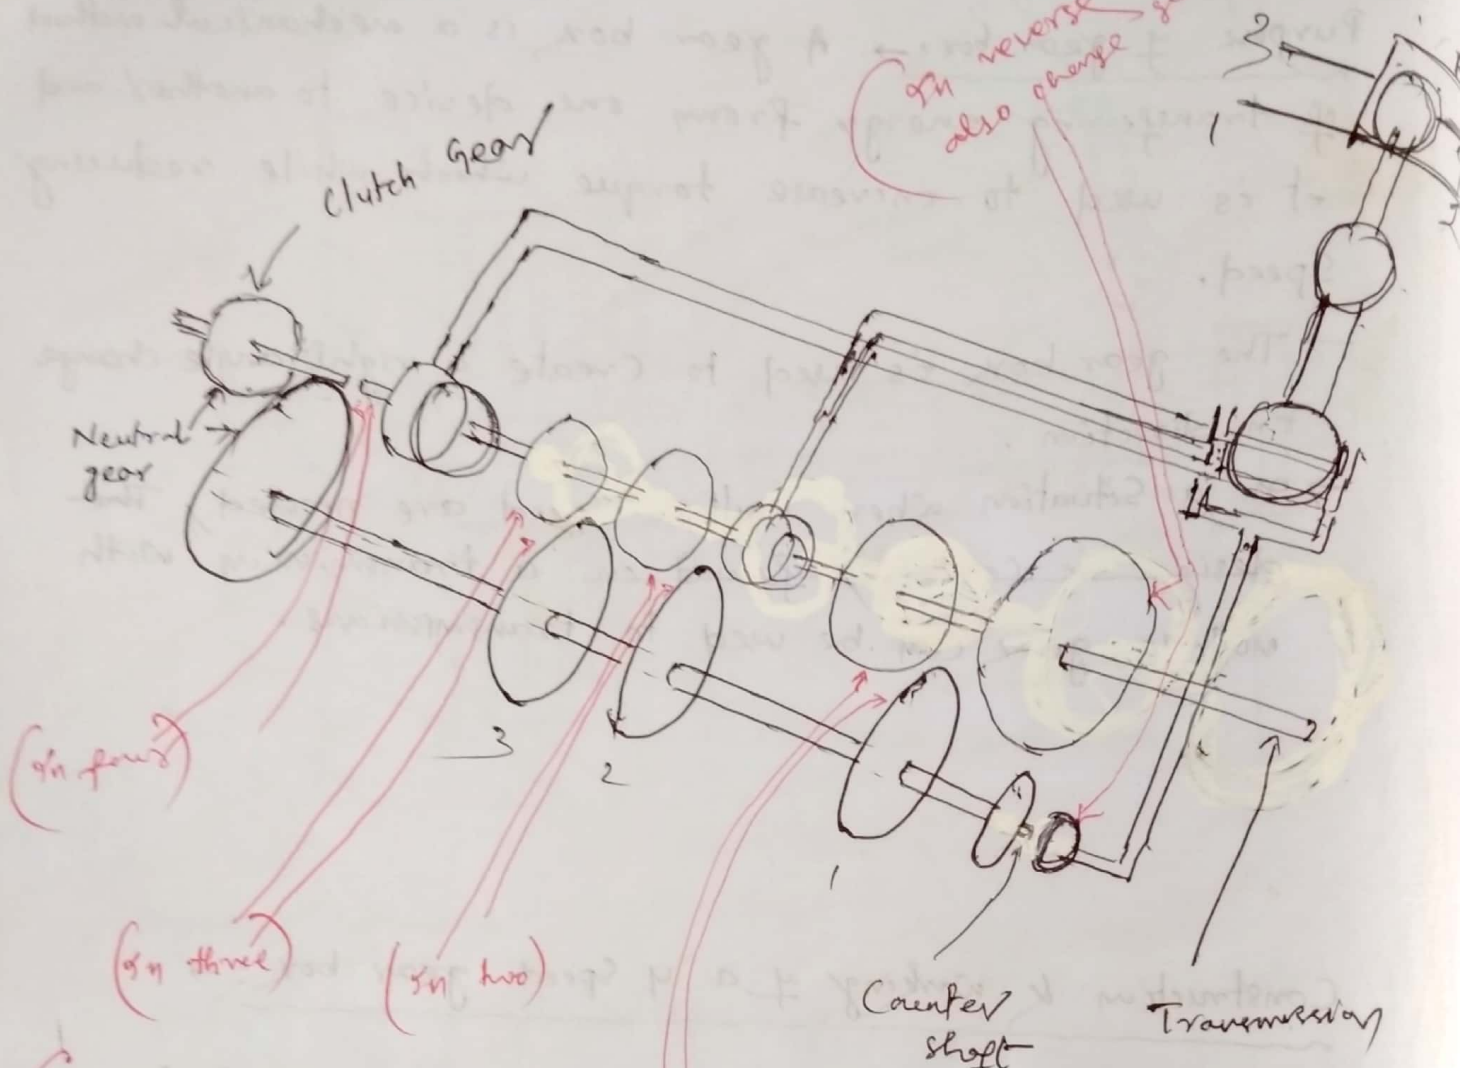 In reverse
also change
3
1
Clutch Gear
Neutral
gear
3
2
1
(In four)
(In three)
(In two)
Counter
shaft
Transmission